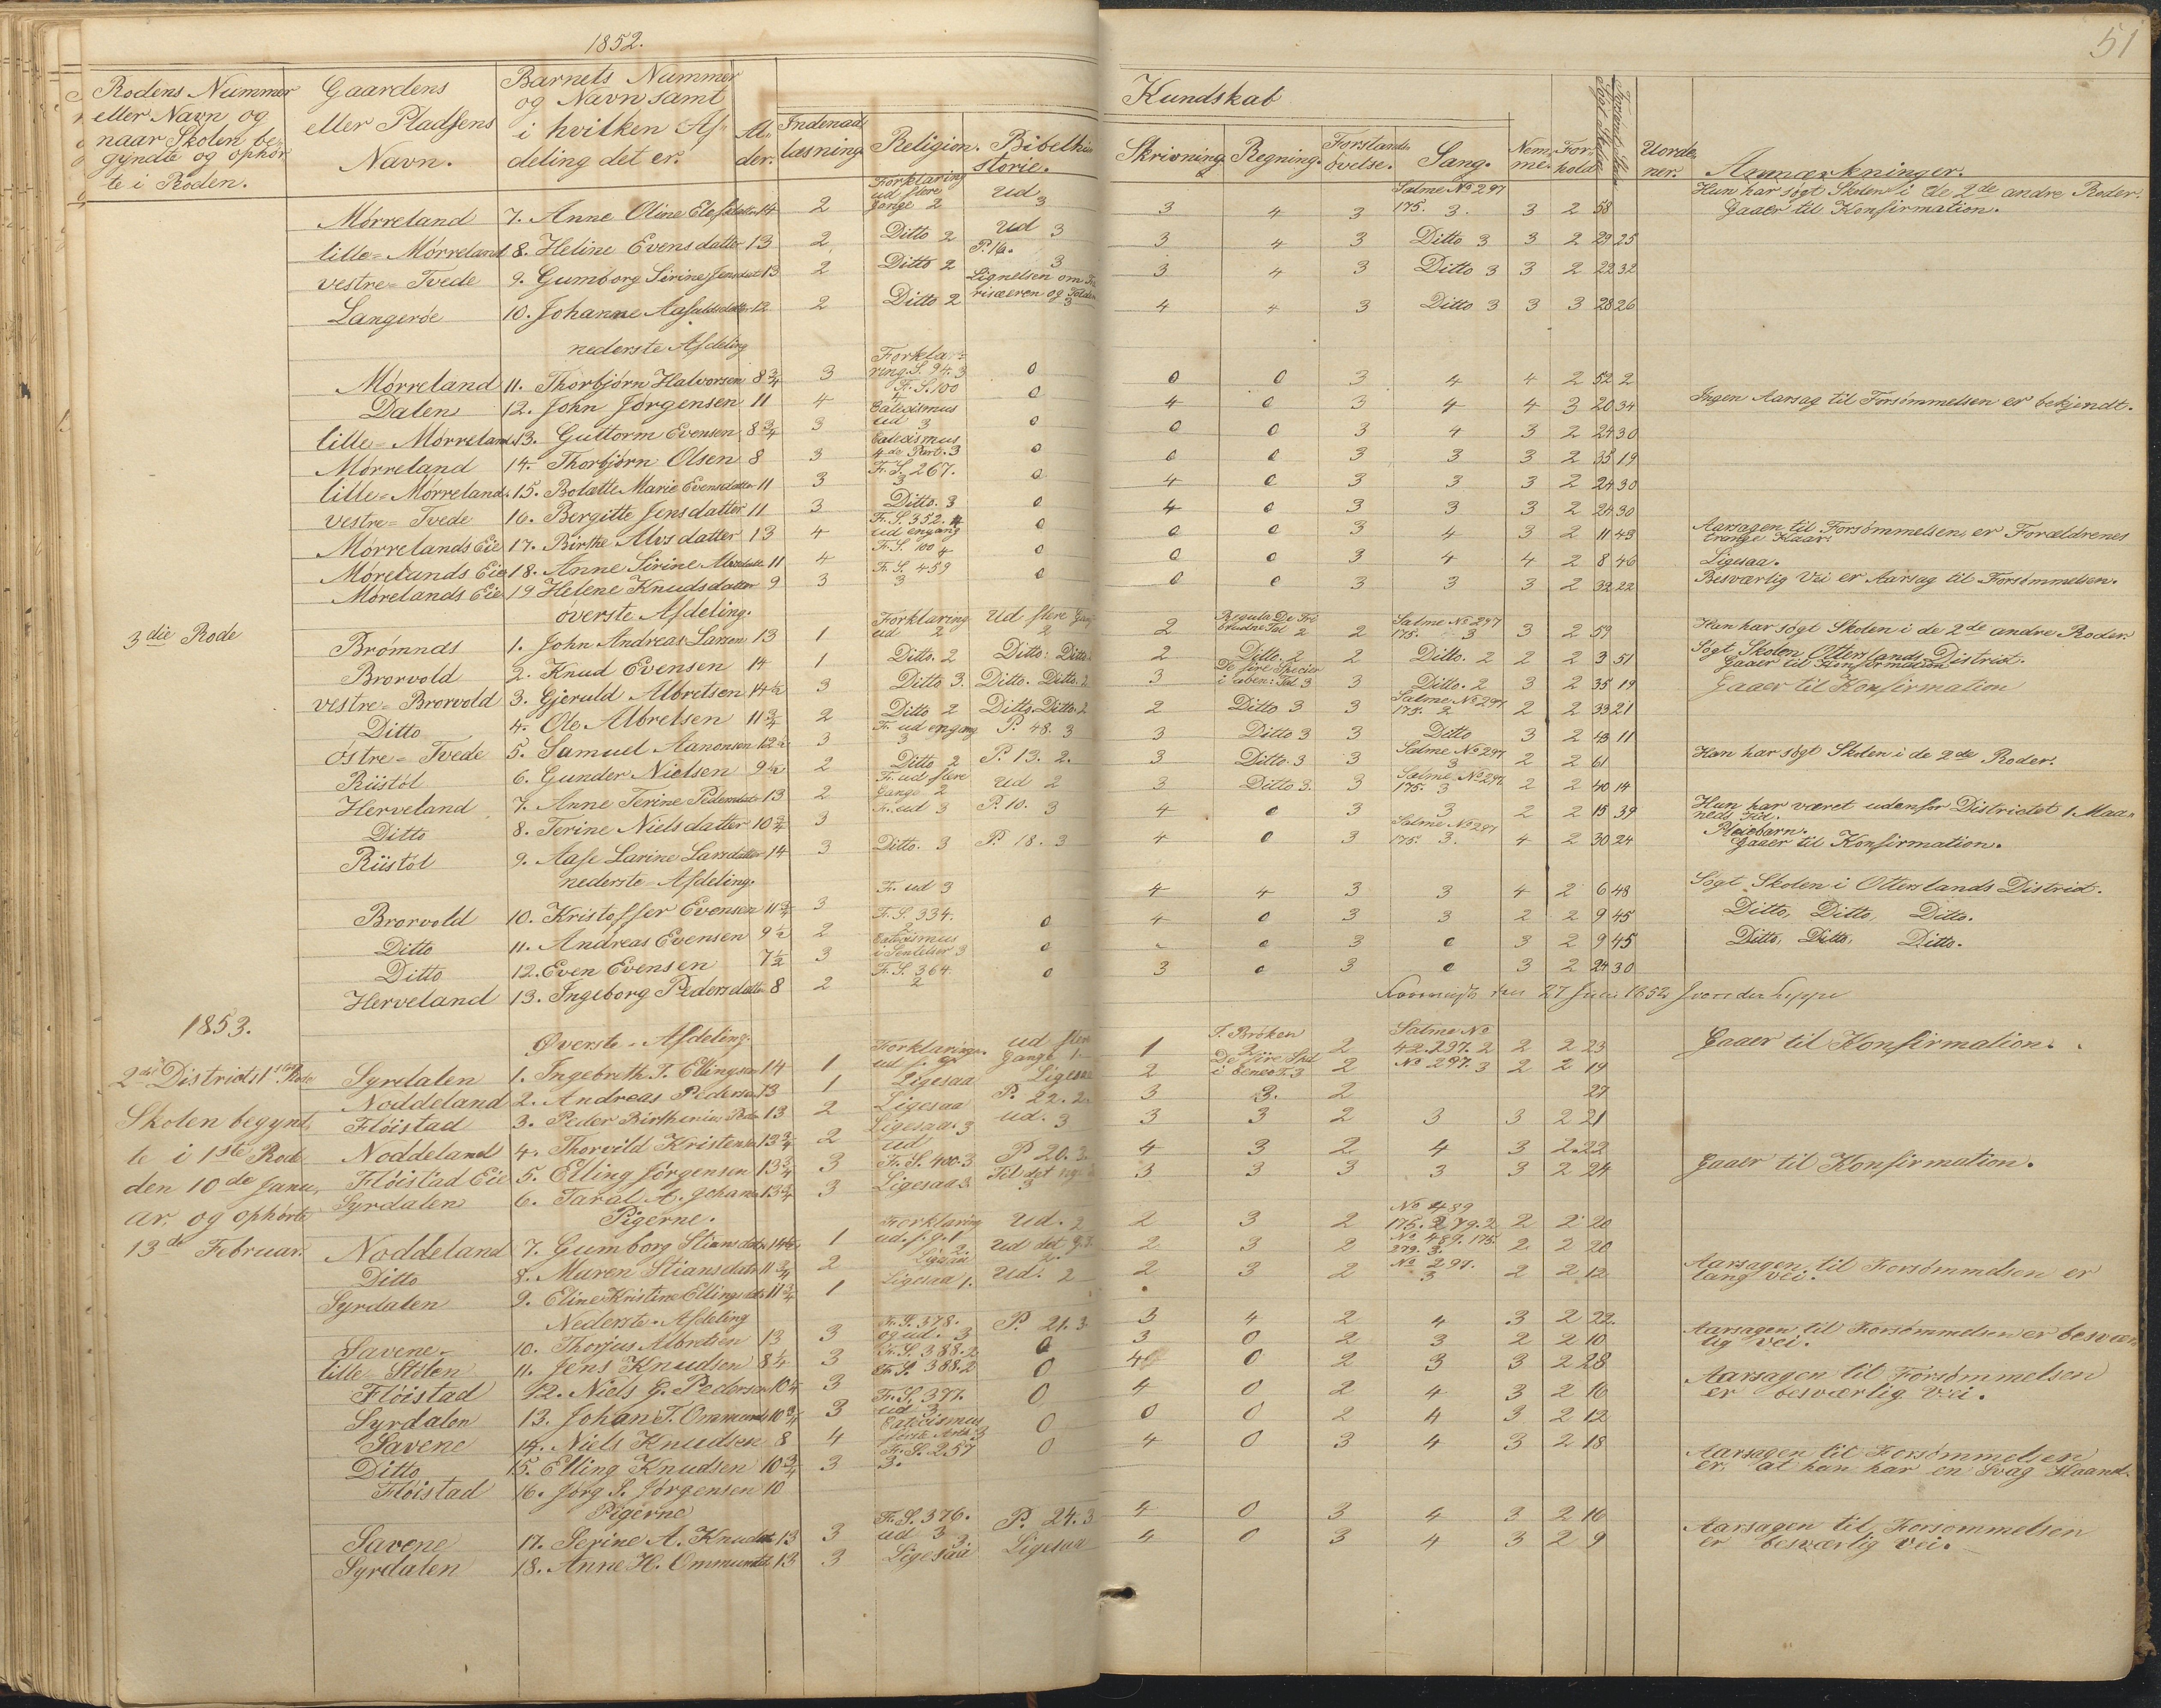 1852.
51
Rodens Nummer eller Navn og naar Skolen begyndte og ophørte i Roden.
Gaardens eller Pladsens Navn.
Barnets Nummer og Navn samt i hvilken Afdeling det er.
Alder.
Kundskab
Indenadlæsning
Religion.
Bibelhistorie.
Skrivning
Regning.
Forstandsøvelse.
Sang.
Nemme.
Forhold
Søgt Skolen
Forsømt Skolen
Uordener.
Anmærkninger.
Mørreland 7. Anne Oline Olefsdatter 14 2 Forklaring ud flere Gange 2 Ud 3 3 4 3 Salme No 297 175. 3. 3 2 58 Hun har søgt Skolen i de 2de andre Roder. Gaaer til Konfirmation.
lille-Mørreland 8. Heline Evensdatter 13 2 Ditto 2 Ud 3 3 4 3 Ditto 3 3 2 29 25
vestre-Tvede 9. Gumborg Sirine Jensdatter 13 2 Ditto 2 P. 16. 3 3 4 3 Ditto 3 3 2 22 32
Langerøe 10. Johanne Aasuldsdatter 12 2 Ditto 2 Lignelsen om Farisæeren og Tolderen 3 4 4 3 Ditto 3 3 3 28 26
nederste Afdeling
Mørreland 11. Thorbjørn Halvorsen 8 3/4 3 Forklaring S. 94. 3 0 0 0 3 4 4 2 52 2
Dalen 12. John Jørgensen 11 4 Fr. S. 100 4 0 4 0 3 4 4 3 20 34 Ingen Aarsag til Forsømmelsen er bekjendt.
lille-Mørreland 13. Guttorm Evensen 8 3/4 3 Catecismus ud 3 0 0 0 3 4 3 2 24 30
Mørreland 14. Thorbjørn Olsen 8 3 Catecismus 4de Part. 3 0 0 0 3 3 3 2 35 19
lille-Mørreland 15. Bolætte Marie Evensdatter 11 3 Fr. S. 267. 3 0 4 0 3 3 3 2 24 30
vestre-Tvede 16. Bergitte Jensdatter 11 3 Ditto. 3 0 4 0 3 3 3 2 24 30
Mørrelands Eie 17. Birthe Alvsdatter 13 4 Fr. S. 352. 4 ud engang 0 0 0 3 4 3 2 11 43 Aarsagen til Forsømmelsen, er Forældrenes trange Kaar.
Mørelands Eie 18. Anne Sirine Alvsdatter 11 4 Fr. S. 100 4 0 0 0 3 4 4 2 8 46 Ligesaa.
Mørelands Eie 19 Helene Knudsdatter 9 3 Fr. S. 459 3 0 0 0 3 3 3 2 32 22 Besværlig Vei er Aarsag til Forsømmelsen.
3die Rode
øverste Afdeling.
Brømnds 1. John Andreas Larsen 13 1 Forklaring ud 2 Ud flere Gang 2 2 Regula De Tri brudne Tal 2 2 Salme No 297 175. 3 3 2 59 Han har søgt Skolen i de 2de andre Roder.
Brorvold 2. Knud Evensen 14 1 Ditto. 2 Ditto: Ditto 2 Ditto. 2 2 Ditto. 2 2 2 3 51 Søgt Skolen Otterslands District. Gaaer til Konfirmation
vestre-Brorvold 3. Gjeruld Albretsen 14 1/2 3 Ditto 3. Ditto. Ditto. 2 3 De fire Specier i aben: Tal 3 3 Ditto. 2 3 2 35 19 Gaaer til Konfirmation
Ditto 4. Ole Albretsen 11 3/4 2 Ditto 2 Ditto. Ditto. 2 2 Ditto 3 3 Salme No 297 175. 2 2 2 33 21
østre-Tvede 5. Samuel Aanonsen 12 1/2 3 Fr. ud engang 3 P. 48. 3 3 Ditto 3 3 Ditto 3 2 43 11
Riistøl 6. Gunder Nielsen 9 1/2 2 Ditto 2 P. 13. 2. 3 Ditto. 3 3 Salme No 297 3 2 2 61 Han har søgt Skolen i de 2de Roder.
Herveland 7. Anne Terine Pedersdatter 13 2 Fr. ud flere Gange 2 Ud 2 3 Ditto 3. 3 Salme No 297 175. 3 2 2 40 14
Ditto 8. Terine Nielsdatter 10 3/4 3 Fr. ud 3 P. 10. 3 4 0 3 3 2 2 15 39 Hun har været udenfor Districtet 1 Maaneds Tid.
Riistøl 9. Aase Larine Larsdatter 14 3 Ditto. 3 P. 18. 3 4 0 3 Salme No 297 175. 3. 4 2 30 24 Pleiebarn. Gaaer til Konfirmation.
nederste-Afdeling.
Brorvold 10. Kristoffer Evensen 11 3/4 3 Fr. ud 3 4 4 3 3 4 2 6 48 Søgt Skolen i Otterslands District.
Ditto 11. Andreas Evensen 9 1/2 2 Fr. S. 334. 2 0 4 0 3 3 2 2 9 45 Ditto, Ditto, Ditto.
Ditto 12. Even Evensen 7 1/2 3 Catecismus i Sentelser 3 0 0 3 0 3 2 9 45 Ditto, Ditto, Ditto.
Herveland 13. Ingeborg Pedersdatter 8 2 Fr. S. 364. 2 0 3 0 3 0 3 2 24 30
27 Juli 1852
1853.
2det Districts 1ste Rode
Skolen begyndte i 1ste Rode den 10de Januar. og ophørte 13de Februar.
Øverste-Afdeling.
Syrdalen 1. Ingebreth T. Ellingsen 14 1 Forklaringen. ud f. g. ud flere Gange 1 1 I. Brøken 2 2 Salme No 42. 297. 2 2 2 23 Gaaer til Konfirmation.
Noddeland 2. Andreas Pedersen 13 1 Ligesaa Ligesaa 2 De fire Spd i Eenet. 3 2 No 297. 3 2 2 19
Fløistad 3. Peder Birtherius 13 2 Ligesaa P. 22. 2 3 3. 2 27
Noddeland 4. Thorvild Kristensen 13 3/4 2 Ligesaa. 3 ud. 3 3 3 2 3 3 2 21
Fløistad Eie 5. Elling Jørgensen 13 3/4 3 ud Fr. S. 400. 3 P 20. 3. 4 3 2 4 3 2. 22
Syrdalen 6. Taral A. Johans 13 3/4 3 Ligesaa 3. Til det 3 3 3 3 3 3 2 24 Gaaer til Konfirmation.
Pigerne.
Noddeland 7. Gumborg Stiansdatter 14 1/2 1 Forklaring ud. f. g. 1 Ud. 2 2 3 2 No 489 175. 279. 2 2 2 20
Ditto 8. Maren Stiansdatter 11 3/4 2 Ligesaa 2. Ud det 2. 2 3 2 No 489. 175. 279. 3. 2 2 20
Syrdalen 9. Eline Kristine Ellingsdatter 11 3/4 1 Ligesaa 1. Ud. 2 2 3 2 No 297. 3 2 2 12 Aarsagen til Forsømmelsen er lang vei.
Nederste-Afdeling
Savene 10. Thorjus Albretsen 13 3 Fr. S. 378. og ud. 3 P. 21. 3. 3 4 2 4 3 2 22.
lille Stølen 11. Jens Knudsen 8 1/4 3 Fr. S. 388. 2 0 3 0 2 3 2 2 10 Aarsagen til Forsømmelsen er besværlig Vei.
Fløistad 12. Niels G. Pedersen 10 1/4 3 Fr. S. 388. 2 0 4 0 2 3 3 2 28
Syrdalen 13. Johan T. Ommunds 10 3/4 3 Fr. S. 377. ud 3 0 4 0 2 4 3 2 16 Aarsagen til Forsømmelsen er besværlig Vei.
Savene 14. Niels Knudsen 8 4 Catecismus første Artk. 3 0 0 0 2 4 3 2 12
Ditto 15. Elling Knudsen 10 3/4 3 Fr. S. 257 3. 0 4 0 3 4 3 2 18
Fløistad 16. Jørg S. Jørgensen 10 Aarsagen til Forsømmelsen er, at han har en Svag Haand.
Pigerne
Savene 17. Serine A. Knudsdt 13 3 Fr. S. 376. ud 3 P. 24. 3 4 0 3 4 3 2 16
Syrdalen 18. Anne H. Ommundsdt 13 3 Ligesaa 3 Ligesaa 4 0 3 4 3 2 9 Aarsagen til Forsømmelsen er besværlig Vei.